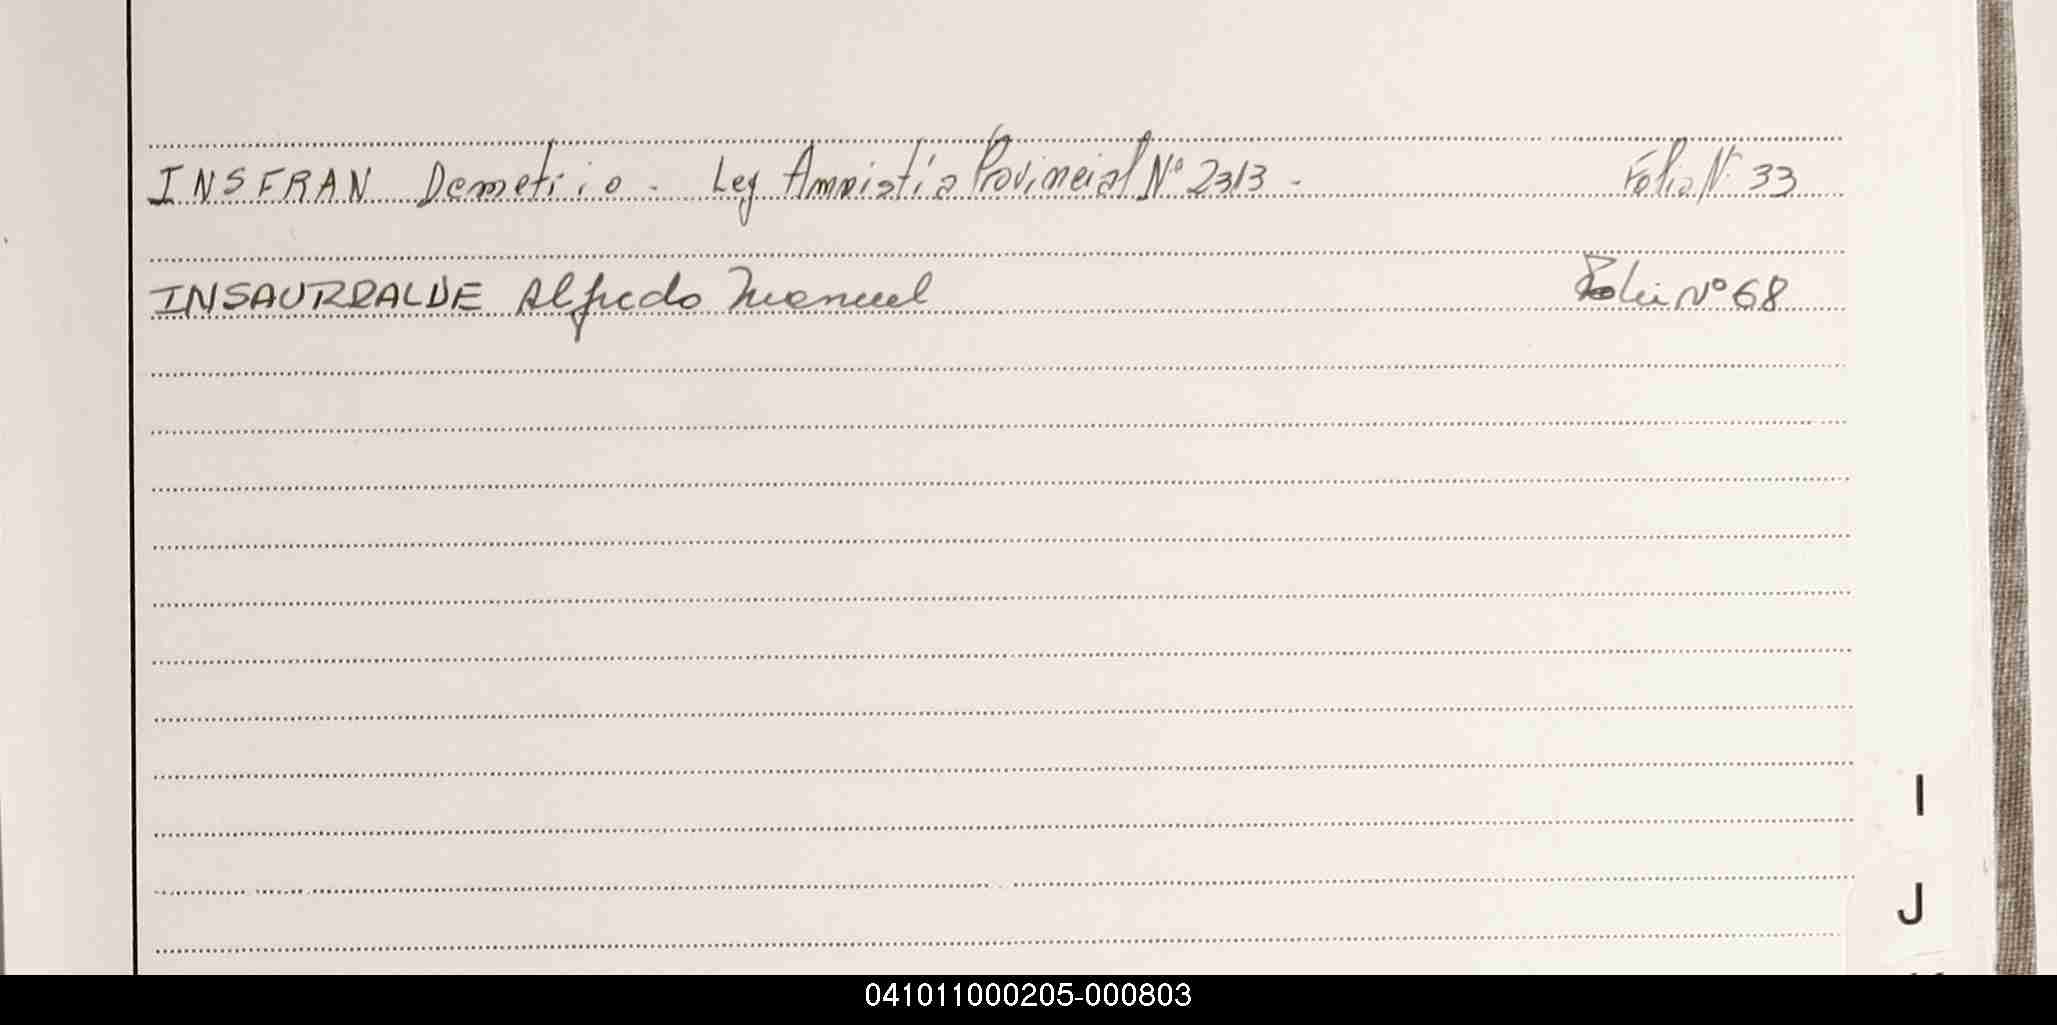 INSFRAN Demetrio - Ley Amnistía Provincial Nº 2313 - Folio Nº 33
INSAURRALDE Alfredo Manuel Folio Nº 68
I
J
041011000205-000803